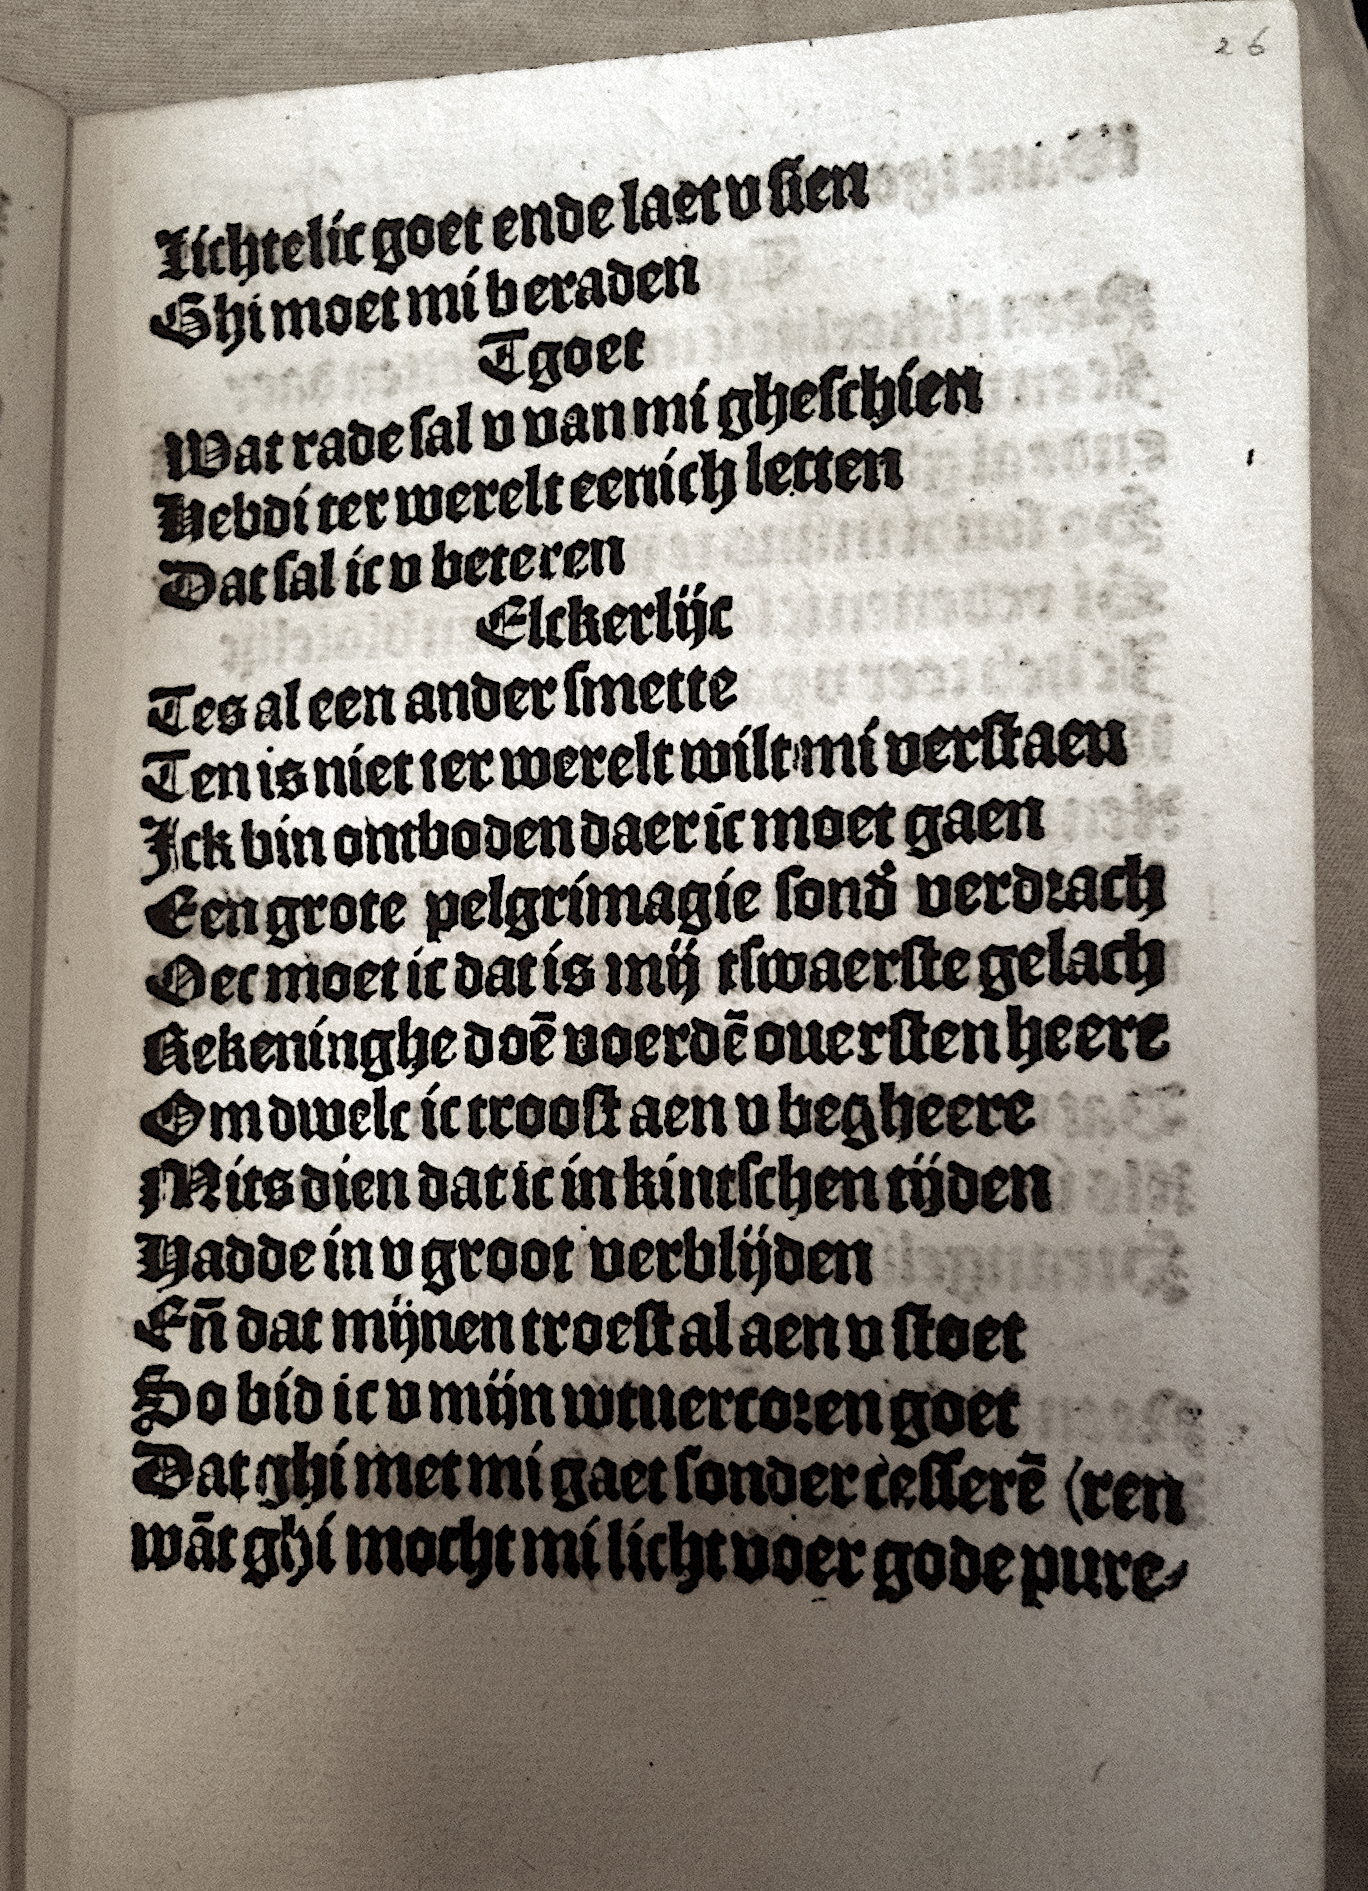 26
Lichtelic goet ende laet v sien
Ghi moet mi beraden
Tgoet
Wat rade sal v van mi gheschien
Hebdi ter werelt eenich letten
Dat sal ic v beteren
Elckerlijc
Tes al een ander smette
Ten is niet ter werelt wilt mi verstaen
Ick bin ontboden daer ic moet gaen
Een grote pelgrimagie sond̾ verdrach
Oec moet ic dat is mij tswaerste gelach
Rekeninghe doē voer dē ouersten heere
Om dwelc ic troost aen v begheere
Mits dien dat ic in kintschen tijden
Hadde in v groot verblijden
En̄ dat mijnen troest al aen v stoet
So bid ic v mijn wtuercoren goet
Dat ghi met mi gaet sonder cesserē (ren
wāt ghi mocht mi licht voer gode pure⸗